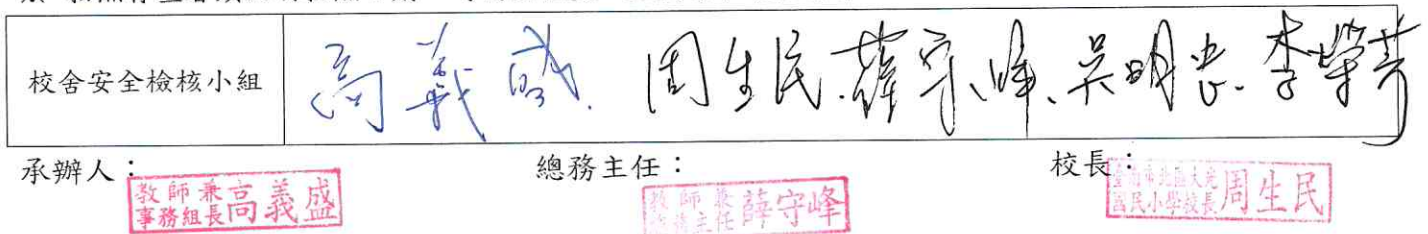 校舍安全檢核小組
高義盛、周生民、薛守峰、吳明忠、李榮芳
承辦人：
教師兼
事務組長高義盛
總務主任：
教師兼
總務主任薛守峰
校長：
臺南市北區大光
國民小學校長周生民